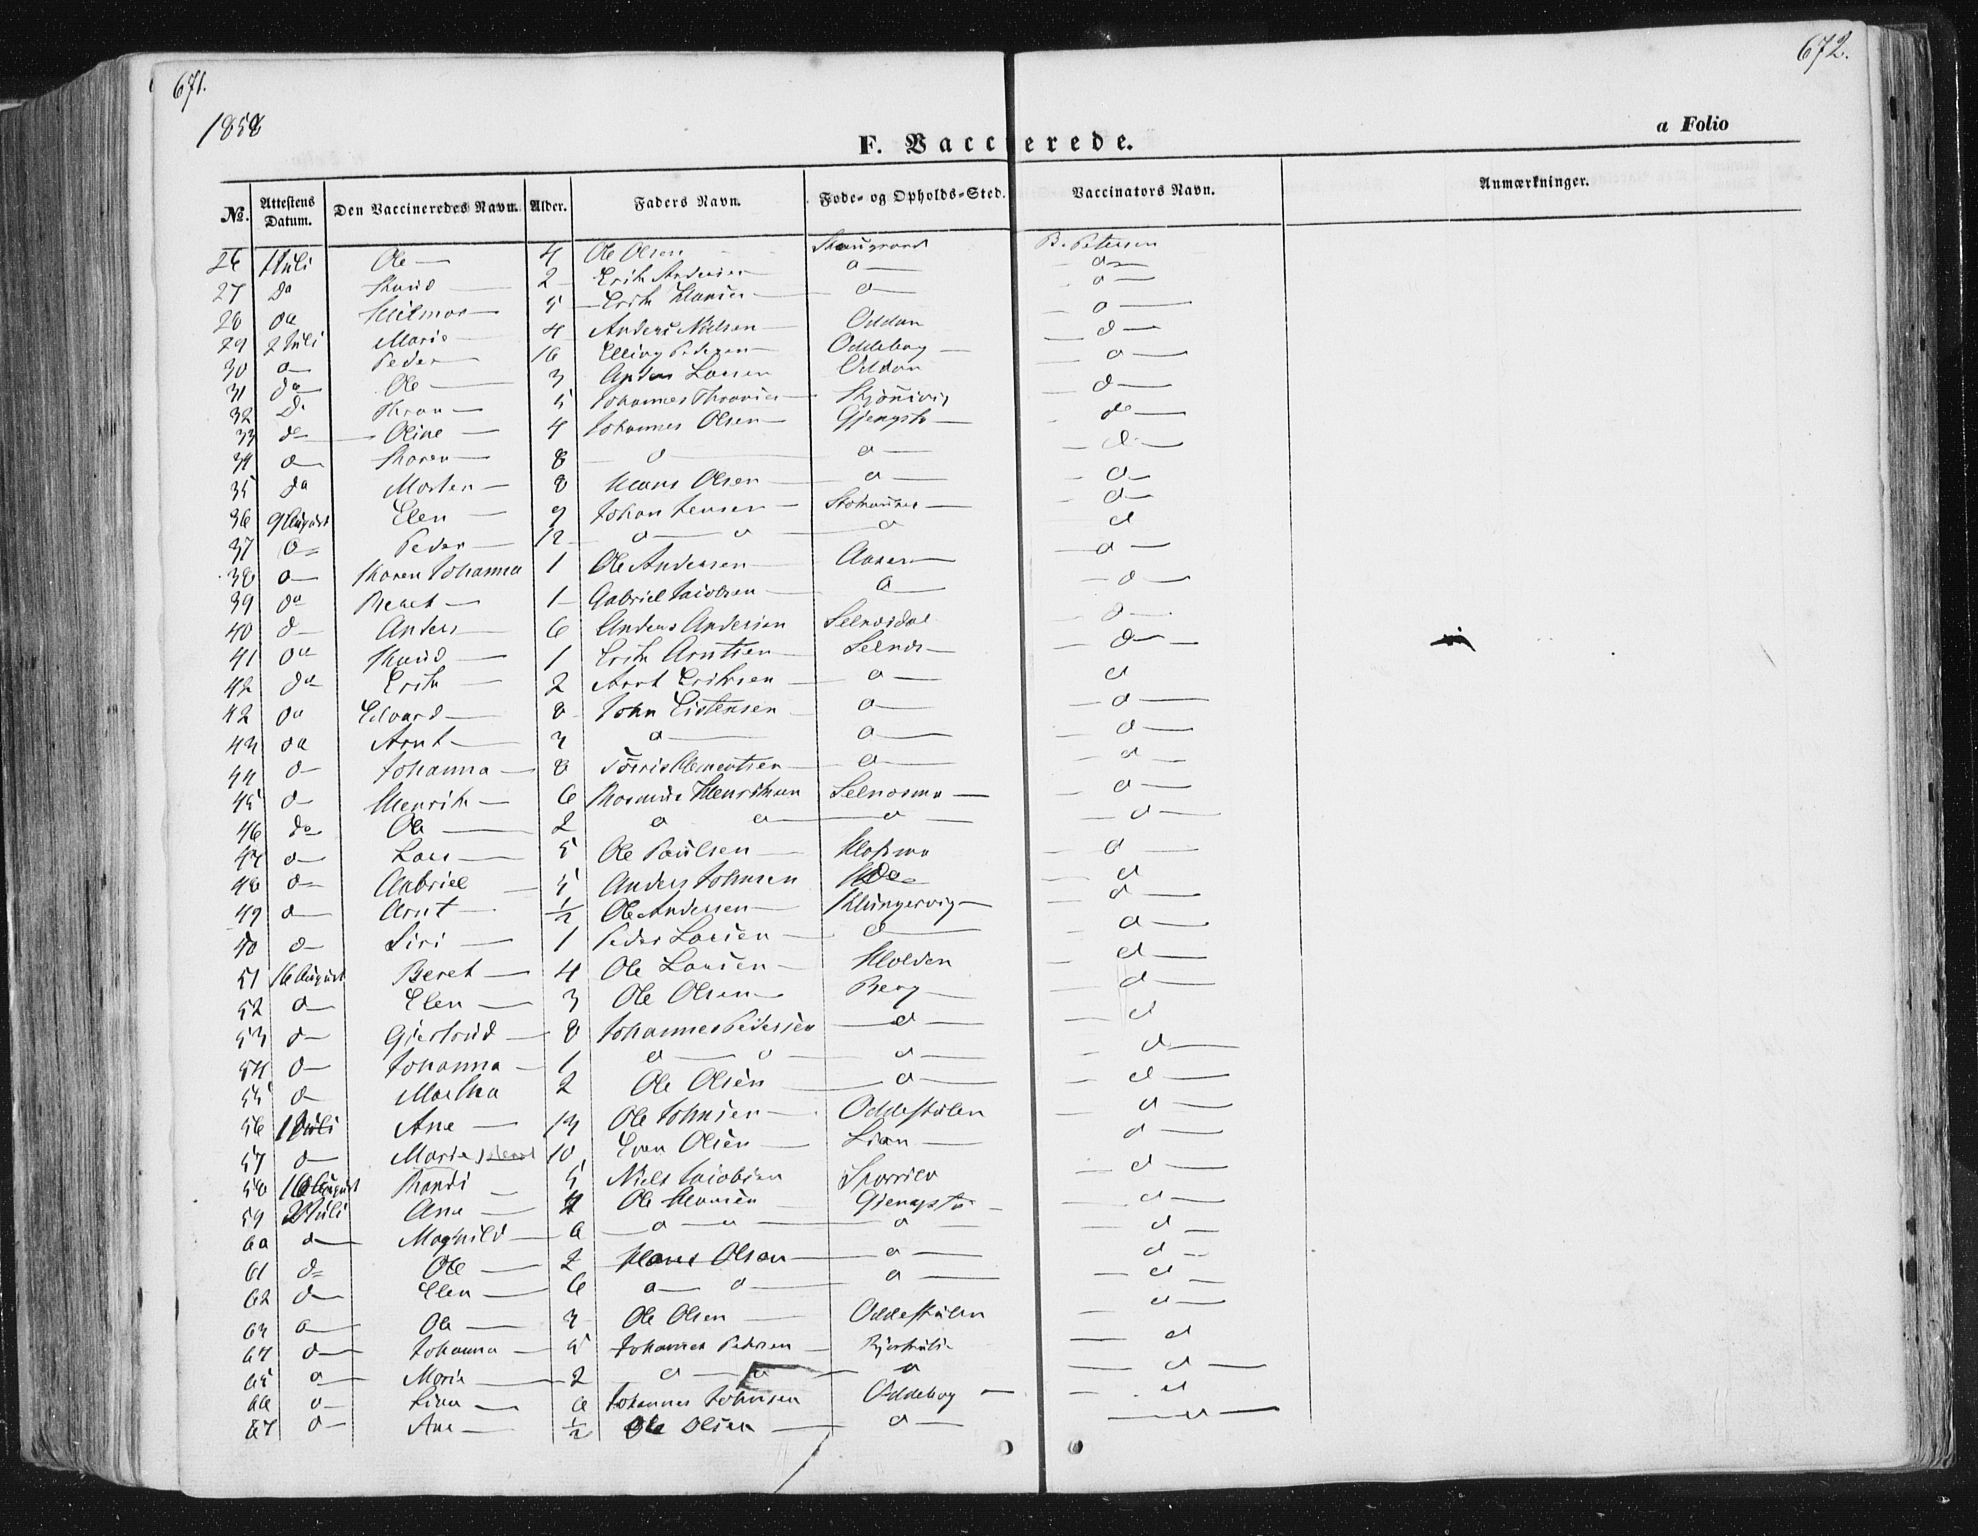 671.
672.
1858
a Folio
F. Vaccinerede.
No. Attestens Datum. Den Vaccineredes Navn. Alder. Faders Navn. Føde- og Opholds-Sted. Vaccinators Navn. Anmærkninger.
26 1 Juli Ole 4 Ole Olsen B. Petersen
27 do 2 Erik Andersen do do
28 do 5 Erik do do
29 2 Juli Marie 4 Anders Nielsen Oddan do
30 do Peder 16 Elling Pedersen Oddebog do
31 do Ole 3 Anders Larsen Oddan do
32 do 5 Johannes do
33 do Oline 4 Johannes Olsen Gjengstø do
34 do Karen 8 do do do
35 do Morten 8 Hans Olsen do do
36 9 August Elen 9 Johan Jensen do
37 do Peder 12 do do do do
38 do Karen Johanna 1 Ole Andersen do
39 do Beret 1 Gabriel Jacobsen do do
40 do Anders 6 Anders Andersen Selnesdal do
41 do 1 Erik Arntsen Selnes do
42 do Erik 2 Arnt Eriksen do do
42 do Edvard 8 John Eistensen do do
43 do Arnt 3 do do do
44 do Johanna 8 do do
45 do Henrik 6 Rasmus Henriksen Selnesmo do
46 do Ole 2 do do do do
47 do Lars 5 Ole Paulsen do
48 do Gabriel 5 Anders Johnsen do do
49 do Arnt 1/2 Ole Andersen Klungervig do
50 do Siri 1 Peder Larsen do do
51 16 August Beret 4 Ole Larsen Holden do
52 do Elen 3 Ole Olsen Berg do
53 do Gjertrud 8 Johannes Pedersen do do
54 do Johanna 1 do do do do
55 do Martha 2 Ole Olsen do do
56 1 Juli Ane 13 Ole Johnsen Oddestølen do
57 do Marie 10 Even Olsen Lian do
58 16 August Randi 5 Niels Jacobsen do
59 2 Juli Ane 4 Ole Hansen Gjengstø do
60 do Magnild 6 do do do do
61 do Ole 2 Hans Olsen do do
62 do Elen 6 do do do do
63 do Ole 3 Ole Olsen Oddestølen do
64 do Johanna 5 Johannes Pedersen do
65 do Marie 2 do do do do
66 do Lina 6 Johannes Johnsen Oddebog do
67 do Ane 1/2 Ole Olsen do do